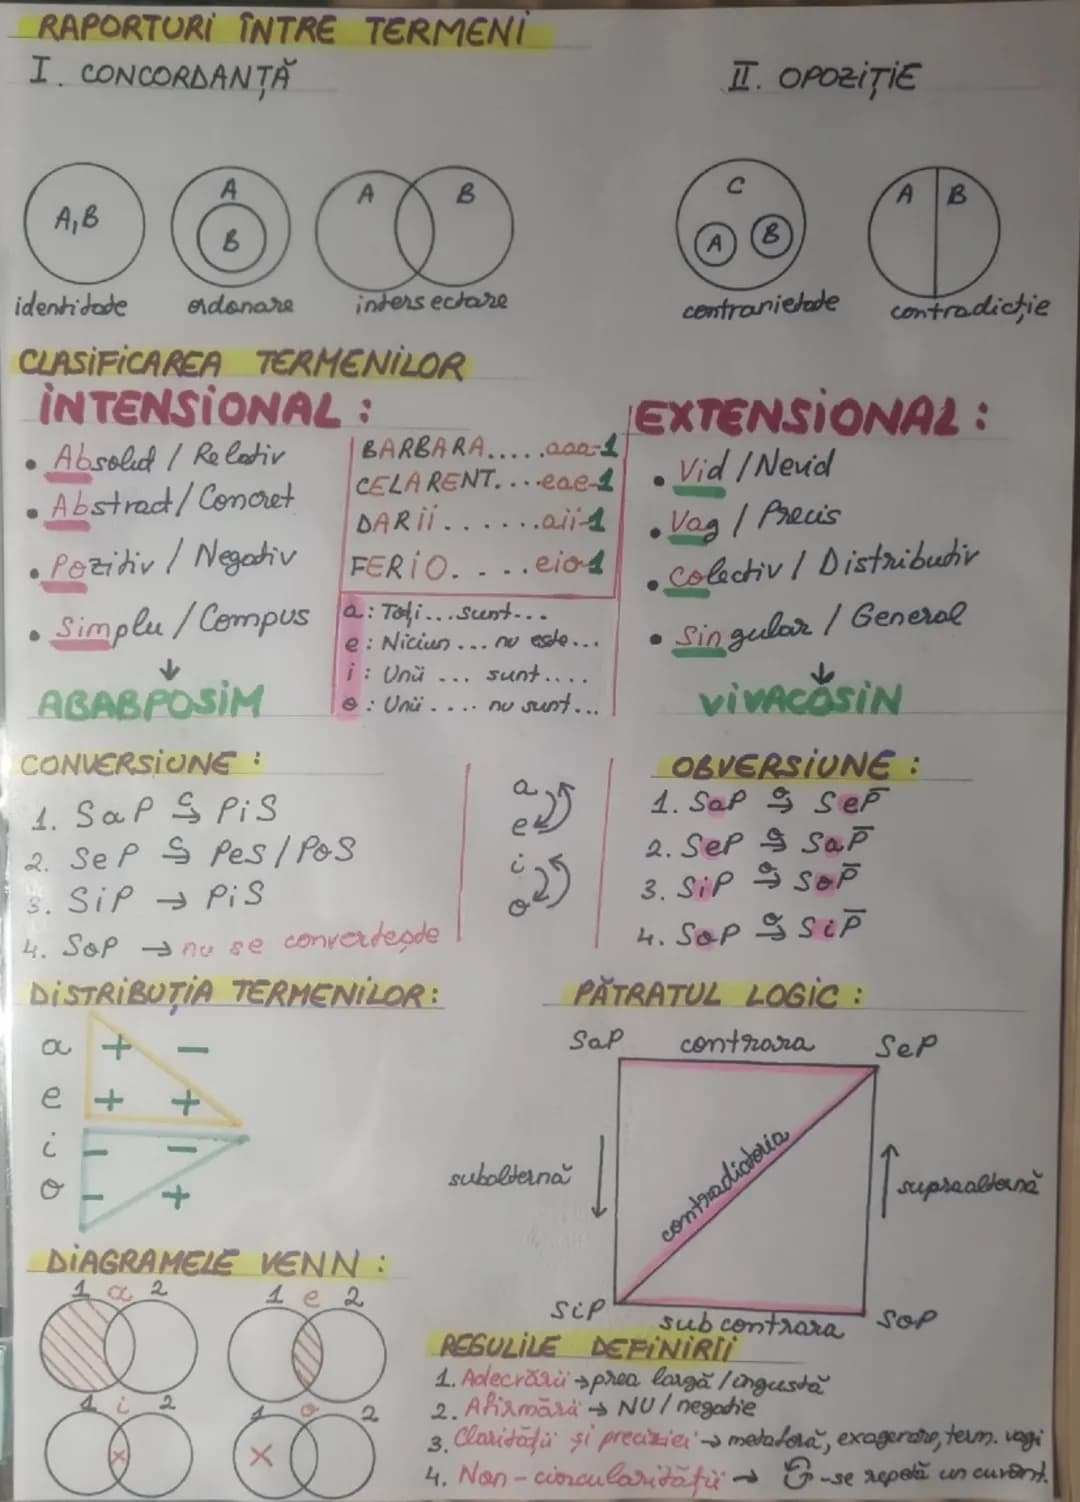 RAPORTURI ÎNTRE TERMENI
I. CONCORDANȚĂ
II. OPOZIȚIE
A,B
A
B
A
B
C
A
B
A
B
identitate
ordonare
intersectare
contrarietate
contradicție
CLASIFICAREA TERMENILOR
INTENSIONAL:
• Absolut / Relativ
• Abstract / Concret
• Pozitiv / Negativ
• Simplu / Compus
↓
ABABPOSIM
BARBARA.....aaa-1
CELARENT....eae-1
DARII......aii-1
FERIO....eio-1
a: Toți...sunt...
e: Niciun ... nu este...
i: Unii ... sunt....
o: Unii .... nu sunt...
EXTENSIONAL:
• Vid / Nevid
• Vag / Precis
• Colectiv / Distributiv
• Singular / General
↓
VIVACOSIN
CONVERSIUNE:
1. SaP PiS
2. SeP PeS/PoS
3. SiP → PiS
4. SoP → nu se convertește
a
e
i
o
OBVERSIUNE:
1. SaP SeP̅
2. SeP SaP̅
3. SiP SoP̅
4. SoP SiP̅
DISTRIBUȚIA TERMENILOR:
a + −
e + +
i − −
o − +
PĂTRATUL LOGIC:
SaP contrara SeP
subalternă
contradictoria
supraalternă
SiP subcontrara SoP
DIAGRAMELE VENN:
1 a 2
1 e 2
1 i 2
x
1 o 2
x
REGULILE DEFINIRII
1. Adecvării → prea largă / îngustă
2. Afirmării → NU / negație
3. Clarității și preciziei → metaforă, exagerare, term. vagi
4. Non-circularității → -se repetă un cuvânt.